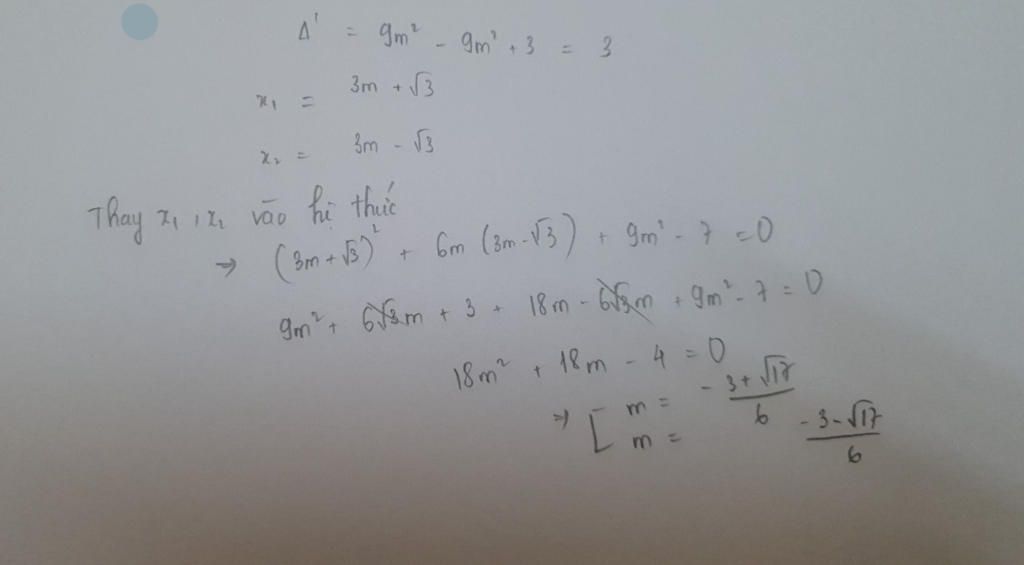 Δ' = 9m² - 9m² + 3 = 3
x₁ = 3m + √3
x₂ = 3m - √3
Thay x₁, x₂ vào hệ thức
⇒ (3m + √3)² + 6m (3m - √3) + 9m² - 7 = 0
9m² + 6√3m + 3 + 18m - 6√3m + 9m² - 7 = 0
18m² + 18m - 4 = 0
⇒ [ m = \frac{-3+√17}{6}
m = \frac{-3-√17}{6}